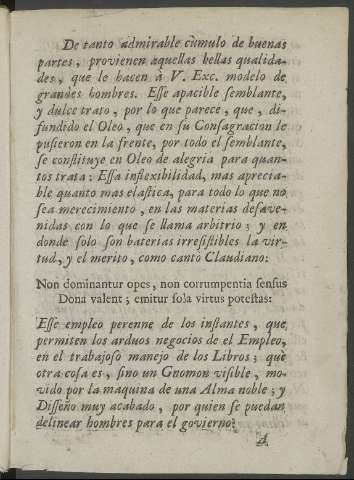 De tanto admirable cùmulo de buenas
partes, provienen aquellas bellas qualida-
des, que le hacen à V. Exc. modelo de
grandes hombres. Esse apacible semblante,
y dulce trato, por lo que parece, que, di-
fundido el Oleo, que en su Consagracion le
pusieron en la frente, por todo el semblante,
se constituye en Oleo de alegria para quan-
tos trata: Essa inflexibilidad, mas aprecia-
ble quanto mas elastica, para todo lo que no
sea merecimiento, en las materias desave-
nidas con lo que se llama arbitrio; y en
donde solo son baterias irresistibles la vir-
tud, y el merito, como cantò Claudiano:
Non dominantur opes, non corrumpentia sensus
Dona valent; emitur sola virtus potestas:
Esse empleo perenne de los instantes, que
permiten los arduos negocios de el Empleo,
en el trabajoso manejo de los Libros; què
otra cosa es, sino un Gnomon visible, mo-
vido por la maquina de una Alma noble; y
Disseño muy acabado, por quien se puedan
delinear hombres para el govierno?
A